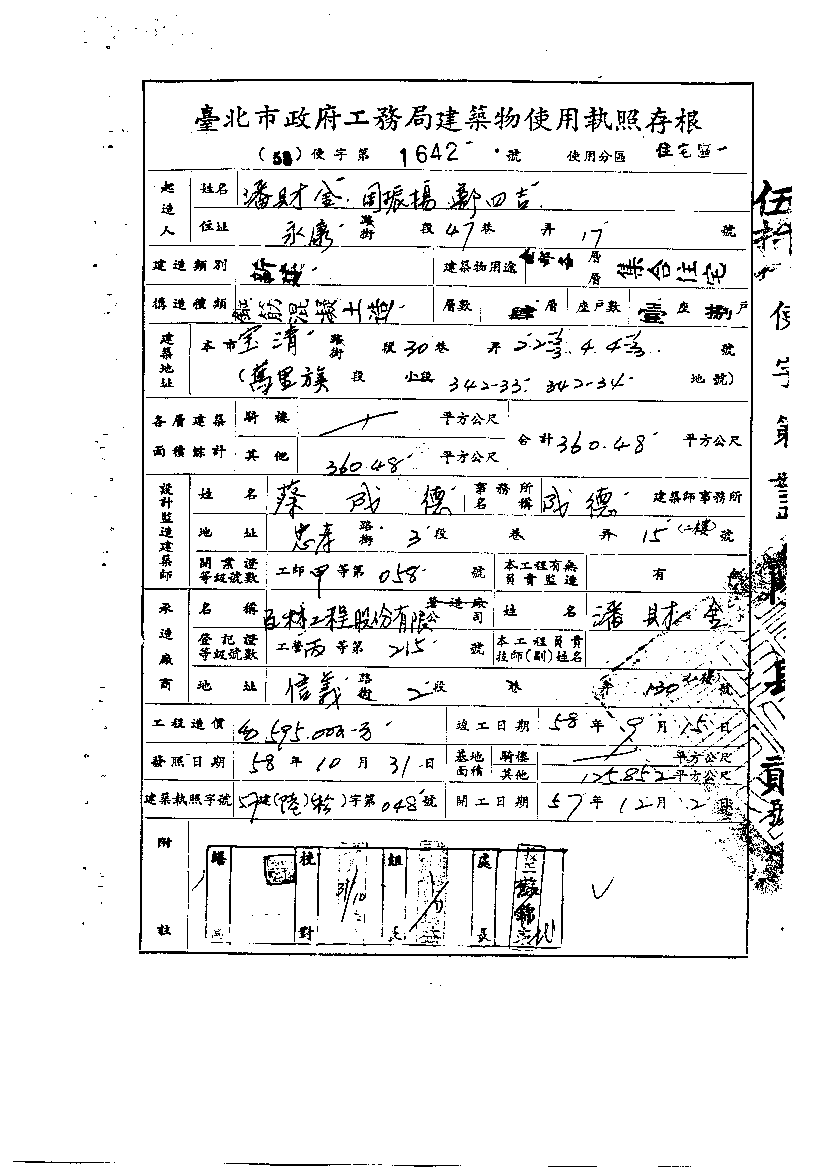 臺北市政府工務局建築物使用執照存根
(58)使字第 1642 號 使用分區 住宅區
起造人 姓名 潘財金．周振揚 鄭四吉
住址 永康 路街 段 47 巷 弄 17 號
建造類別 新建 建築物用途 層層 集合住宅
構造種類 鋼筋混凝土造 層數 肆 層 座戶數 壹 座 捌 戶
建築地址 本市 寶清 路街 段 30 巷 弄 號
(萬里族 段 小段 342-33 342-34 地號)
各層建築面積總計 騎樓 平方公尺 合計 360.48 平方公尺
其他 360.48 平方公尺
設計監造建築師 姓名 蔡成德 事務所名稱 成德 建築師事務所
地址 忠孝 路街 3 段 巷 弄 15(二樓) 號
開業證等級號數 工師 甲 等第 058 號 本工程有無負責監造 有
承造廠商 名稱 百林工程股份有限 營造廠公司 姓名 潘財金
登記證等級號數 工營 丙 等第 215 號 本工程負責技師(副)姓名
地址 信義 路街 2 段 巷 弄 130(二樓) 號
工程造價 595.000 竣工日期 58 年 9 月 15 日
發照日期 58 年 10 月 31 日 基地面積 騎樓 平方公尺
其他 125.852 平方公尺
建築執照字號 57 建( )( )字第 048 號 開工日期 57 年 12 月 2 日
附註
校對 31/10 組長 處長
使字第